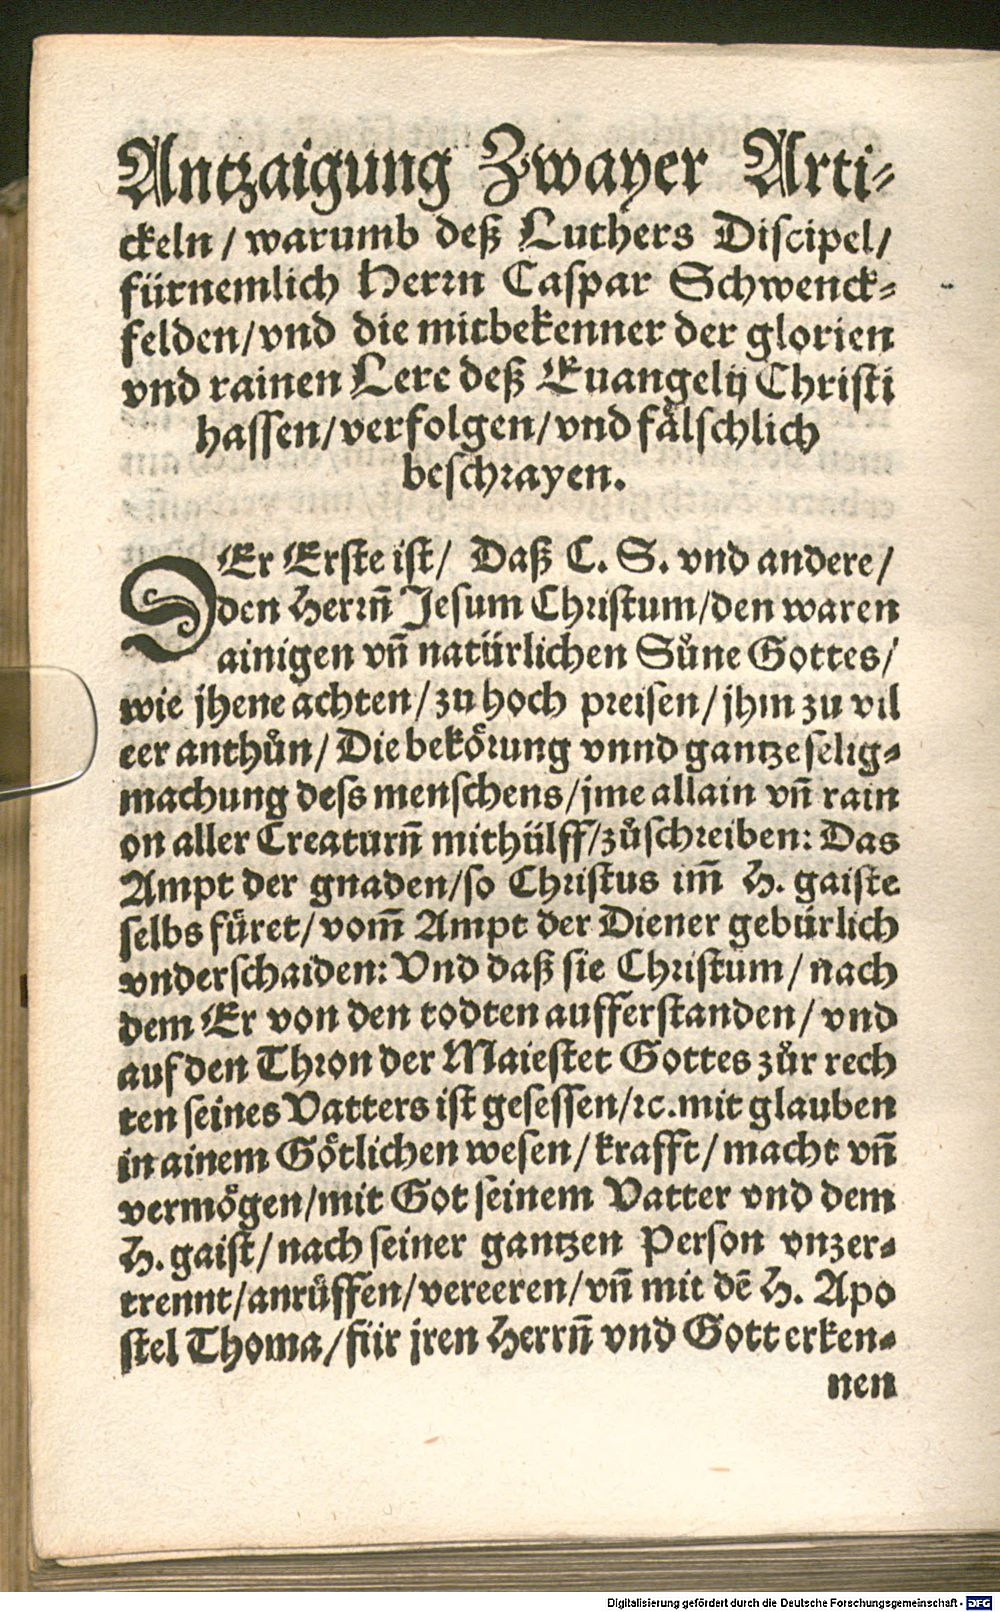 Antzaigung Zwayer Arti-
ckeln / warumb deß Luthers Discipel /
fürnemlich Herrn Caspar Schwenck-
felden / vnd die mitbekenner der glorien
vnd rainen Lere deß Euangelij Christi
hassen / verfolgen / vnd fälschlich
beschrayen.
DEr Erste ist / Daß C. S. vnd andere /
den Herrn̄ Jesum Christum / den waren
ainigen vn̄ natürlichen Sůne Gottes /
wie jhene achten / zu hoch preisen / jhm zu vil
eer anthůn / Die bekörung vnnd gantze selig-
machung dess menschens / jme allain vn̄ rain
on aller Creaturn̄ mithülff / zůschreiben: Das
Ampt der gnaden / so Christus im̄ H. gaiste
selbs füret / vom̄ Ampt der Diener gebürlich
vnderschaiden: Vnd daß sie Christum / nach
dem Er von den todten aufferstanden / vnd
auf den Thron der Maiestet Gottes zůr rech
ten seines Vatters ist gesessen / ꝛc. mit glauben
in ainem Götlichen wesen / krafft / macht vn̄
vermögen / mit Got seinem Vatter vnd dem
H. gaist / nach seiner gantzen Person vnzer-
trennt / anrůffen / vereeren / vn̄ mit dē H. Apo
stel Thoma / für jren Herrn̄ vnd Gott erken-
nen
Digitalisierung gefördert durch die Deutsche Forschungsgemeinschaft - DFG